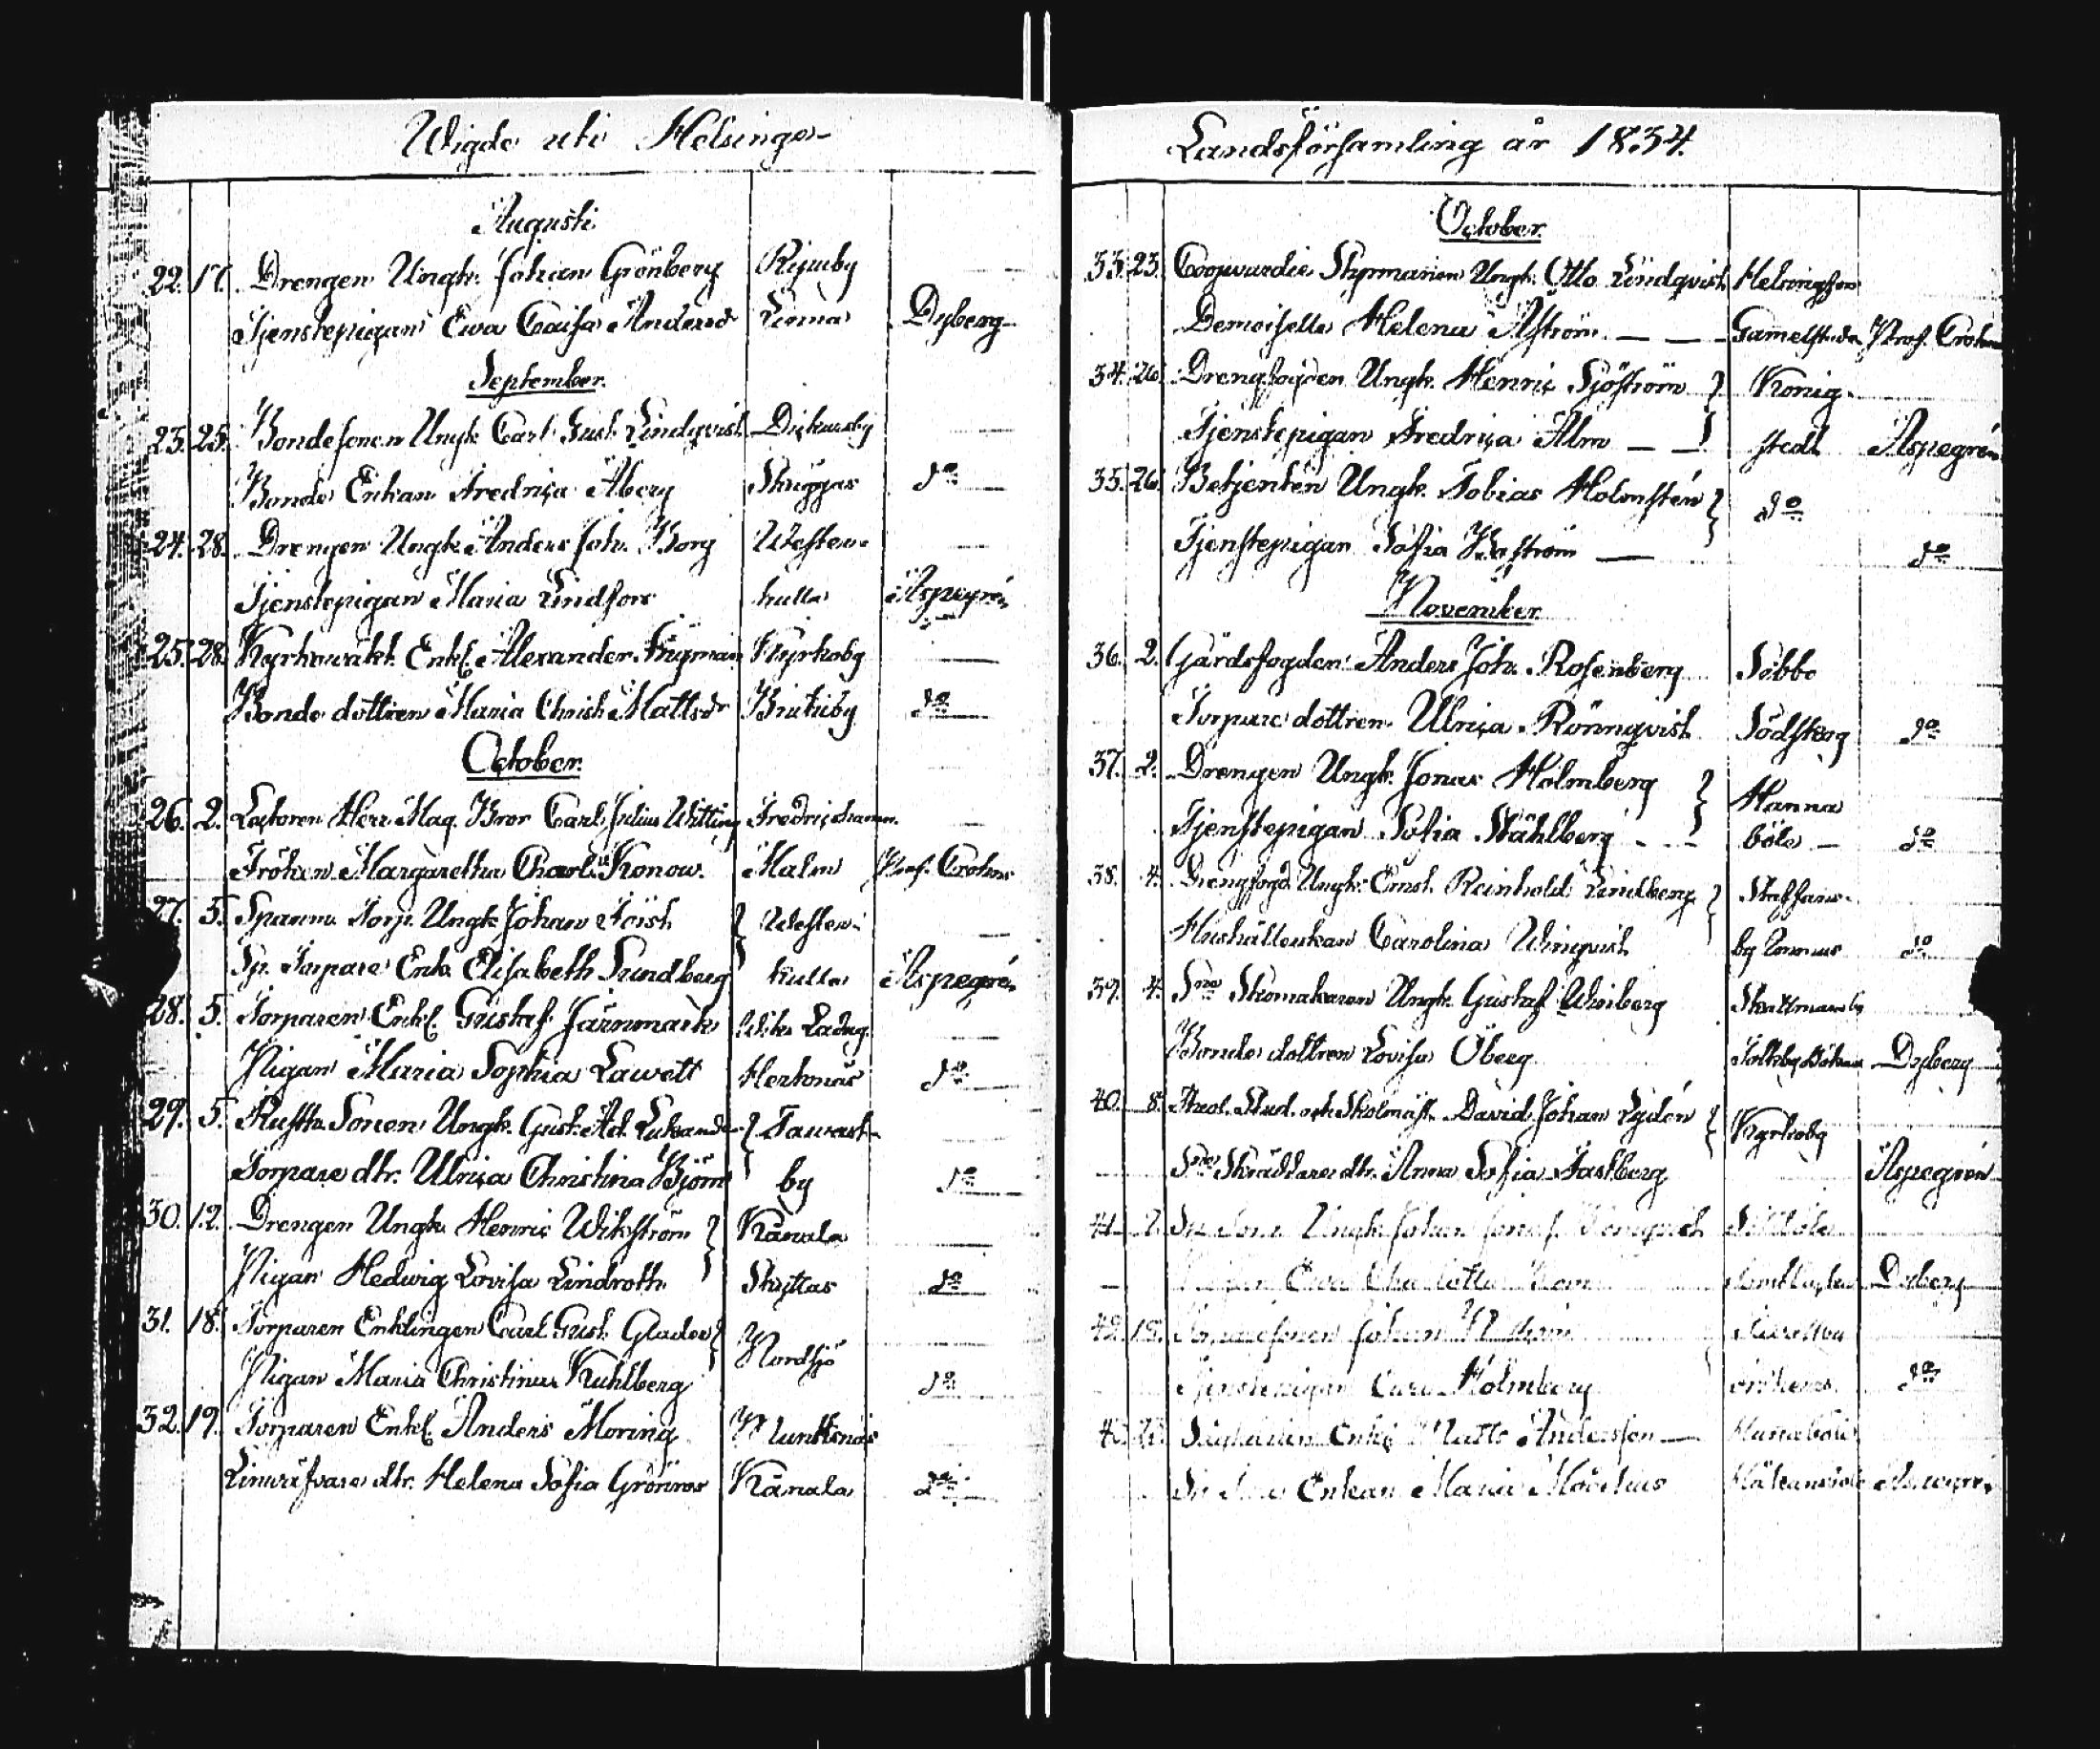 Wigde uti Helsinge
Augusti
22. 17. Drengen Ungk. Johan Grönberg
Tjenstepigan Ewa Caisa Andersdr Dyberg
September.
23. 25. Bondesonen Ungk. Carl Gust. Lindqvist Dickursby
Bonde Enkan Fredrica Åberg Skrüggas do
24. 28. Drengen Ungk. Anders Joh. Borg Westen-
Tjenstepigan Maria Lindfors kulla Aspegrén
25. 28. Kyrkowäkt. Enkl. Alexander Kyrkoby
Bonde dottren Maria Christ. Mattsdr Brutuby do
October.
26. 2. Lectoren Herr Mag. Bror Carl Julius Witting Fredricshamn.
Fröken Margaretha Charl. Konow. Malm Prof. Crohns
27. 5. Spannm. Torp. Ungk. Johan
Westen-
Sp. Torpare Enk. Elisabeth Sundberg kulla Aspegrén
28. 5. Torparen Enkl. Gustaf Järnmark Wiks Ladug.
Pigan Maria Sophia Lawett Hertonäs do
29. 5. Rusth. Sonen Ungk. Gust. Ad. Tawast-
Torpare dtr. Ulrica Christina Björn by do
30. 12. Drengen Ungk. Henric Wikström Kånala
Pigan Hedwig Lovisa Lindroth Skyttas do
31. 18. Torparen Enklingen Carl Gust. Glader Nordsjö
Pigan Maria Christina Kuhlberg do
32. 19. Torparen Enkl. Anders Moring Munksnäs
Linwäfvare dtr. Helena Sofia Grönros Kånala do
Landsförsamling år 1834.
October.
33. 23. Coopvardie Styrmannen Ungk. Otto Lindqvist Helsingfors
Demoiselle Helena Åström Gamelstaden Prof. Crohns
34. 26. Drengfogden Ungk. Henric Sjöström König-
Tjenstepigan Fredrica Alm stedt Aspegrén
35. 26. Betjenten Ungk. Tobias Holmstén do
Tjenstepigan Sofia do
November.
36. 2. Gårdsfogden Anders Joh. Rosenberg Tobbo
Torpare dottren Ulrica Rönnqvist Södskog do
37. 2. Drengen Ungk. Jonas Holmberg Hanna
Tjenstepigan Sofia Ståhlberg böle do
38. 4. Drengfogd. Ungk. Ernst Reinhold Lindberg Staffans-
Hushållerskan Carolina Winqvist by do
39. 4. Skomakaren Ungk. Gustaf Wiberg Skattmansby
Bonde dottren Lovisa Öberg Tolkby Dyberg
40. 8. Stud. och Skolmäst. David Johan Lydén Kyrkoby
Skräddare dtr. Anna Sofia Fastberg Aspegrén
41. 2. Ungk. Johan
Ewa Charlotta Dyberg
42. Johan
Tjenstepigan Holmberg do
43. Enkl. Matts Andersson Hannaböle
Enkan Maria